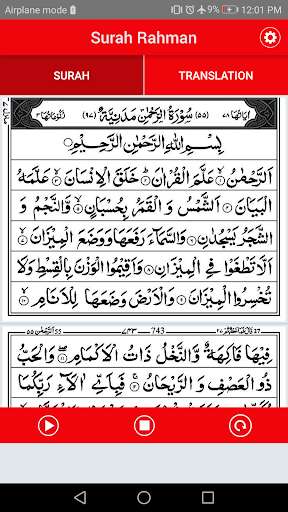 Airplane mode 12:01 PM
Surah Rahman
SURAH TRANSLATION
سُوْرَةُ الرَّحْمٰنِ مَدَنِيَّةٌ (٥٥) (٩٧)
بِسْمِ اللّٰهِ الرَّحْمٰنِ الرَّحِيْمِ
اَلرَّحْمٰنُ ۙ﴿۱﴾ عَلَّمَ الْقُرْاٰنَ ؕ﴿۲﴾ خَلَقَ الْاِنْسَانَ ۙ﴿۳﴾ عَلَّمَهُ
الْبَيَانَ ﴿۴﴾ اَلشَّمْسُ وَ الْقَمَرُ بِحُسْبَانٍ ﴿۵﴾ وَّالنَّجْمُ وَ
الشَّجَرُ يَسْجُدٰنِ ﴿۶﴾ وَالسَّمَآءَ رَفَعَهَا وَوَضَعَ الْمِيْزَانَ ۙ﴿۷﴾
اَلَّا تَطْغَوْا فِي الْمِيْزَانِ ﴿۸﴾ وَاَقِيْمُوا الْوَزْنَ بِالْقِسْطِ وَلَا
تُخْسِرُوا الْمِيْزَانَ ﴿۹﴾ وَالْاَرْضَ وَضَعَهَا لِلْاَنَامِ ﴿۱۰﴾
743 ٧٤٣
فِيْهَا فَاكِهَةٌ ۙ وَّالنَّخْلُ ذَاتُ الْاَكْمَامِ ﴿۱۱﴾ وَالْحَبُّ
ذُو الْعَصْفِ وَ الرَّيْحَانُ ﴿۱۲﴾ فَبِاَيِّ اٰلَآءِ رَبِّكُمَا